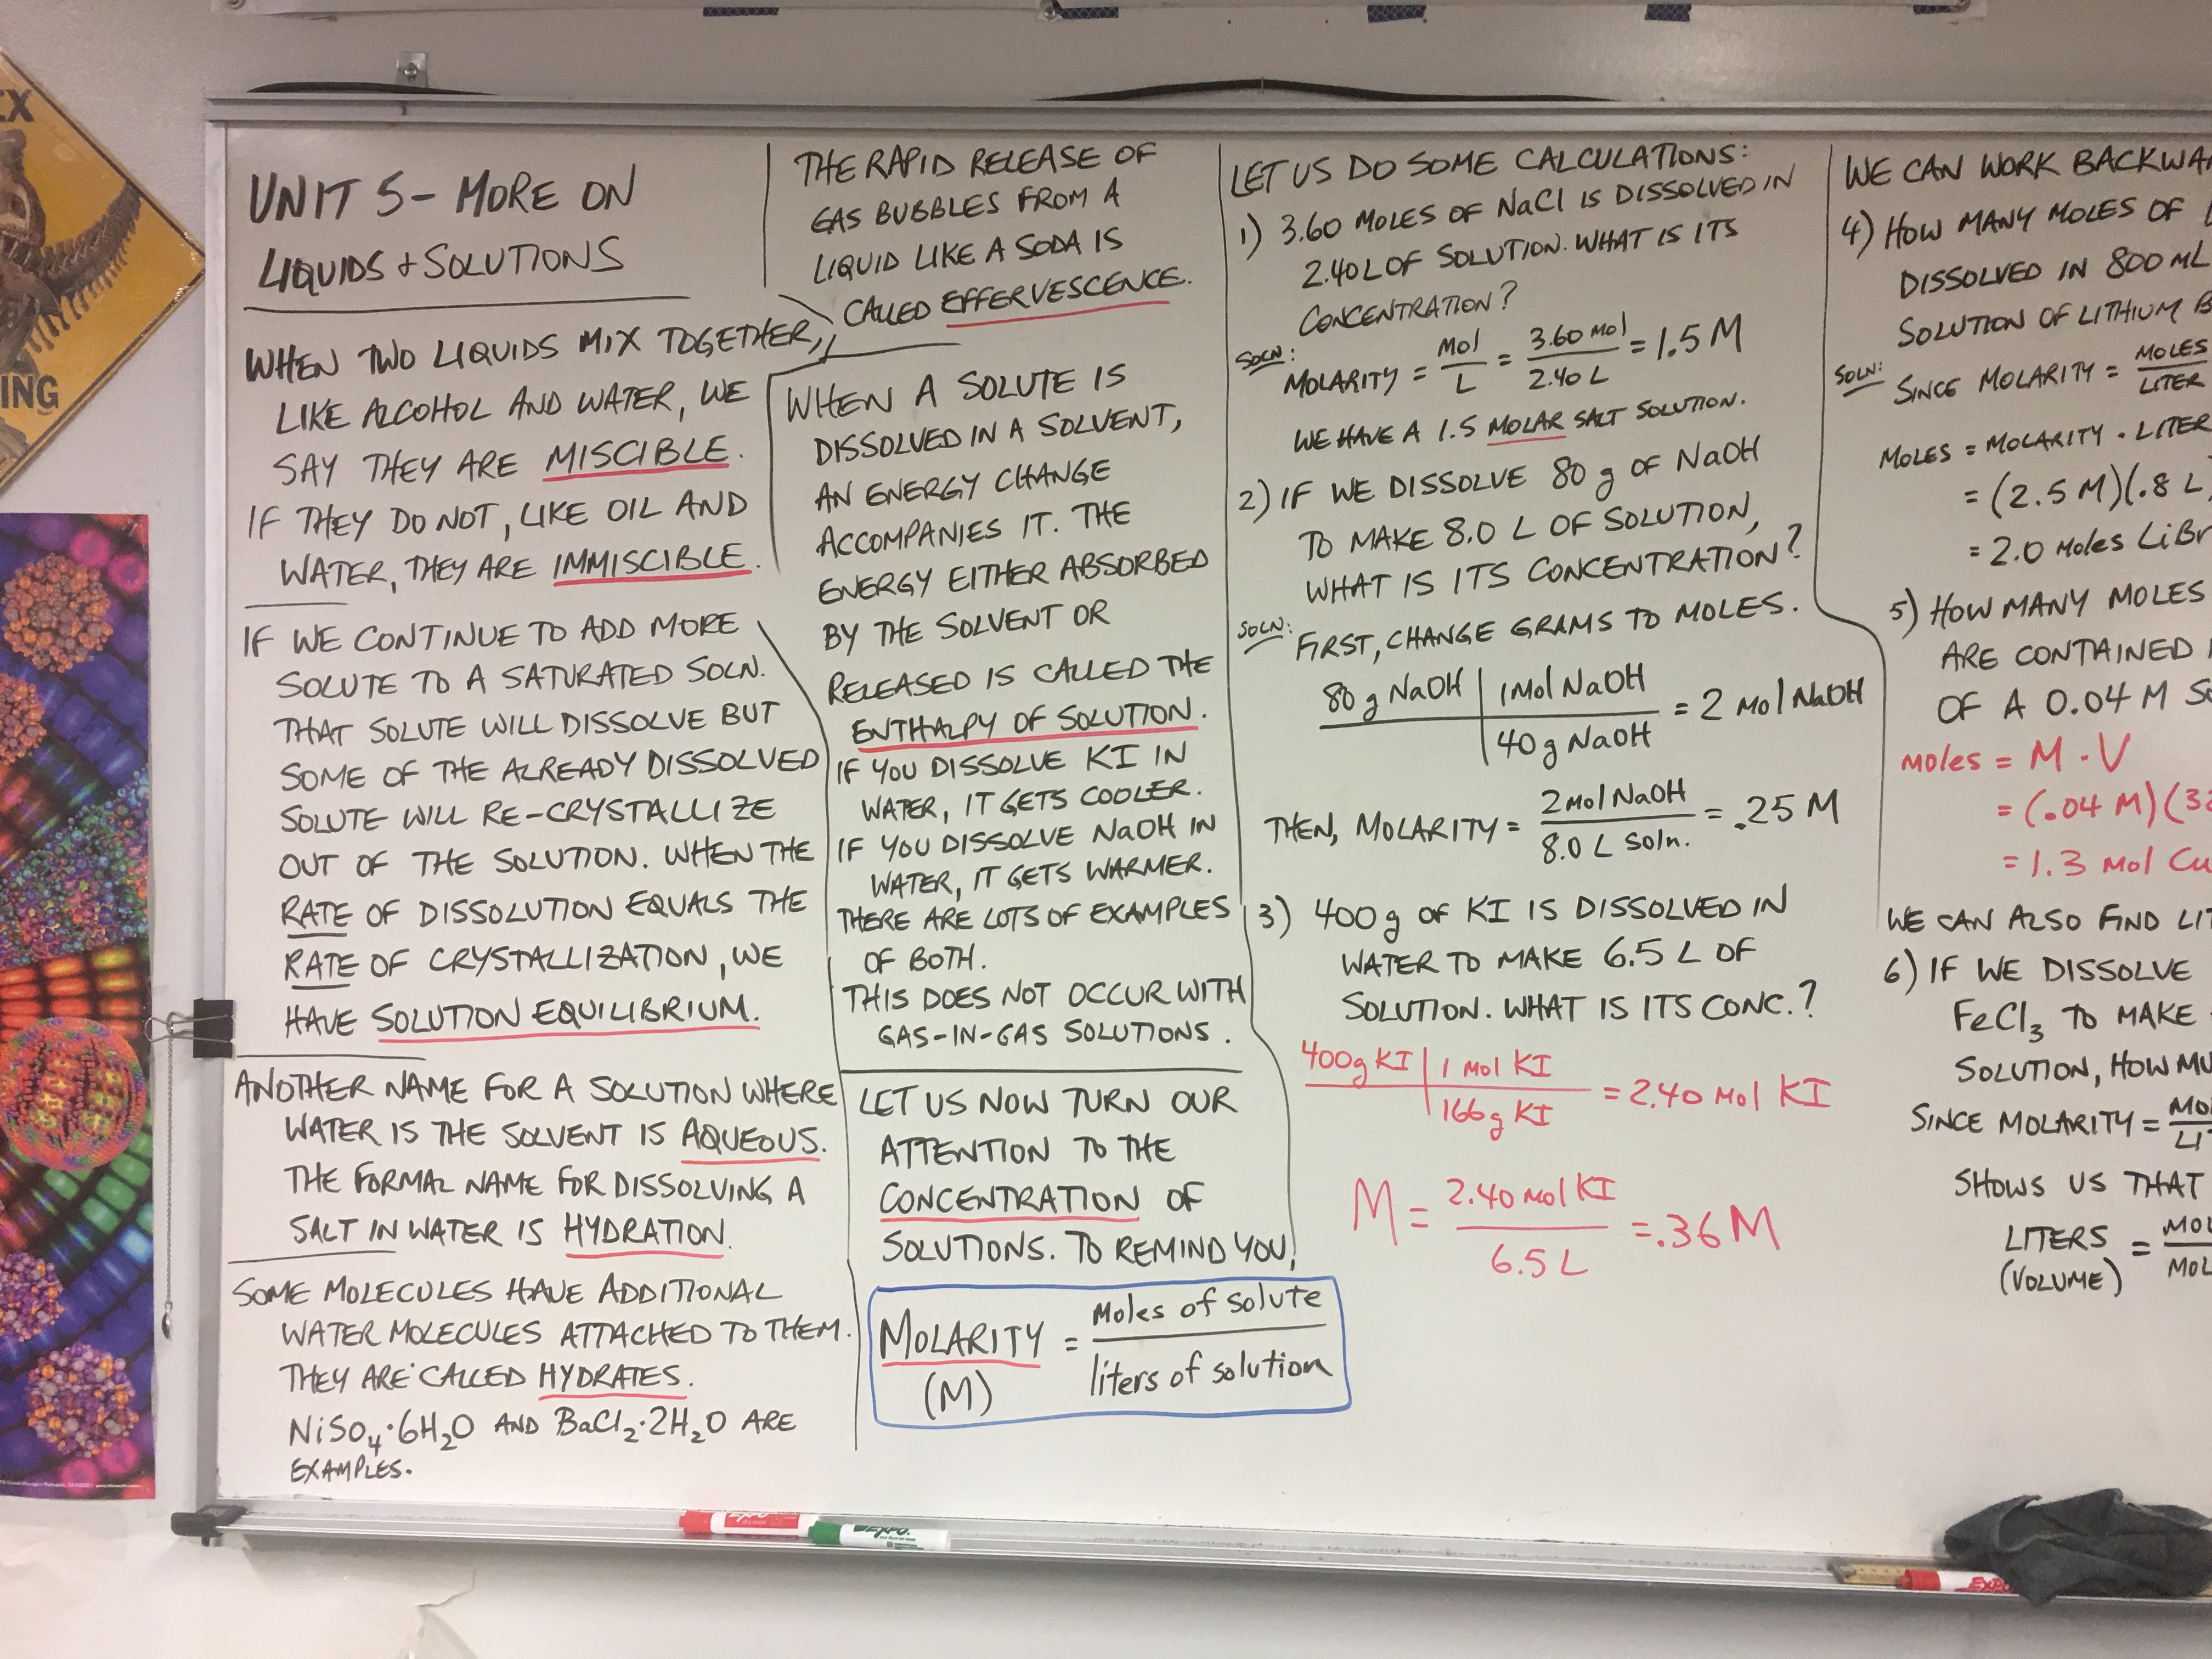 EX
ING
UNIT 5 - MORE ON
LIQUIDS + SOLUTIONS
WHEN TWO LIQUIDS MIX TOGETHER,
LIKE ALCOHOL AND WATER, WE
SAY THEY ARE MISCIBLE.
IF THEY DO NOT, LIKE OIL AND
WATER, THEY ARE IMMISCIBLE.
IF WE CONTINUE TO ADD MORE
SOLUTE TO A SATURATED SOLN.
THAT SOLUTE WILL DISSOLVE BUT
SOME OF THE ALREADY DISSOLVED
SOLUTE WILL RE-CRYSTALLIZE
OUT OF THE SOLUTION. WHEN THE
RATE OF DISSOLUTION EQUALS THE
RATE OF CRYSTALLIZATION, WE
HAVE SOLUTION EQUILIBRIUM.
ANOTHER NAME FOR A SOLUTION WHERE
WATER IS THE SOLVENT IS AQUEOUS.
THE FORMAL NAME FOR DISSOLVING A
SALT IN WATER IS HYDRATION.
SOME MOLECULES HAVE ADDITIONAL
WATER MOLECULES ATTACHED TO THEM.
THEY ARE CALLED HYDRATES.
NiSO₄·6H₂O AND BaCl₂·2H₂O ARE
EXAMPLES.
THE RAPID RELEASE OF
GAS BUBBLES FROM A
LIQUID LIKE A SODA IS
CALLED EFFERVESCENCE.
WHEN A SOLUTE IS
DISSOLVED IN A SOLVENT,
AN ENERGY CHANGE
ACCOMPANIES IT. THE
ENERGY EITHER ABSORBED
BY THE SOLVENT OR
RELEASED IS CALLED THE
ENTHALPY OF SOLUTION.
IF YOU DISSOLVE KI IN
WATER, IT GETS COOLER.
IF YOU DISSOLVE NaOH IN
WATER, IT GETS WARMER.
THERE ARE LOTS OF EXAMPLES
OF BOTH.
THIS DOES NOT OCCUR WITH
GAS-IN-GAS SOLUTIONS.
LET US NOW TURN OUR
ATTENTION TO THE
CONCENTRATION OF
SOLUTIONS. TO REMIND YOU,
MOLARITY = Moles of solute
(M) liters of solution
LET US DO SOME CALCULATIONS:
1) 3.60 MOLES OF NaCl IS DISSOLVED IN
2.40 L OF SOLUTION. WHAT IS ITS
CONCENTRATION?
SOLN: MOLARITY = Mol/L = 3.60 Mol/2.40 L = 1.5 M
WE HAVE A 1.5 MOLAR SALT SOLUTION.
2) IF WE DISSOLVE 80 g OF NaOH
TO MAKE 8.0 L OF SOLUTION,
WHAT IS ITS CONCENTRATION?
SOLN: FIRST, CHANGE GRAMS TO MOLES.
80 g NaOH | 1 Mol NaOH
40 g NaOH = 2 Mol NaOH
THEN, MOLARITY = 2 mol NaOH/8.0 L soln. = .25 M
3) 400 g OF KI IS DISSOLVED IN
WATER TO MAKE 6.5 L OF
SOLUTION. WHAT IS ITS CONC.?
400g KI | 1 mol KI
166g KI = 2.40 Mol KI
M = 2.40 mol KI/6.5 L = .36 M
WE CAN WORK BACKWA
4) HOW MANY MOLES OF
DISSOLVED IN 800 mL
SOLUTION OF LITHIUM B
SOLN: SINCE MOLARITY = MOLES/LITER
MOLES = MOLARITY · LITER
= (2.5 M)(.8 L
= 2.0 Moles LiBr
5) HOW MANY MOLES
ARE CONTAINED
OF A 0.04 M S
moles = M · V
= (.04 M)(32
= 1.3 mol Cu
WE CAN ALSO FIND LIT
6) IF WE DISSOLVE
FeCl₃ TO MAKE
SOLUTION, HOW MU
SINCE MOLARITY = MO/LIT
SHOWS US THAT
LITERS = MOL/MOL
(VOLUME)
EXPO
EXPO
EXPO